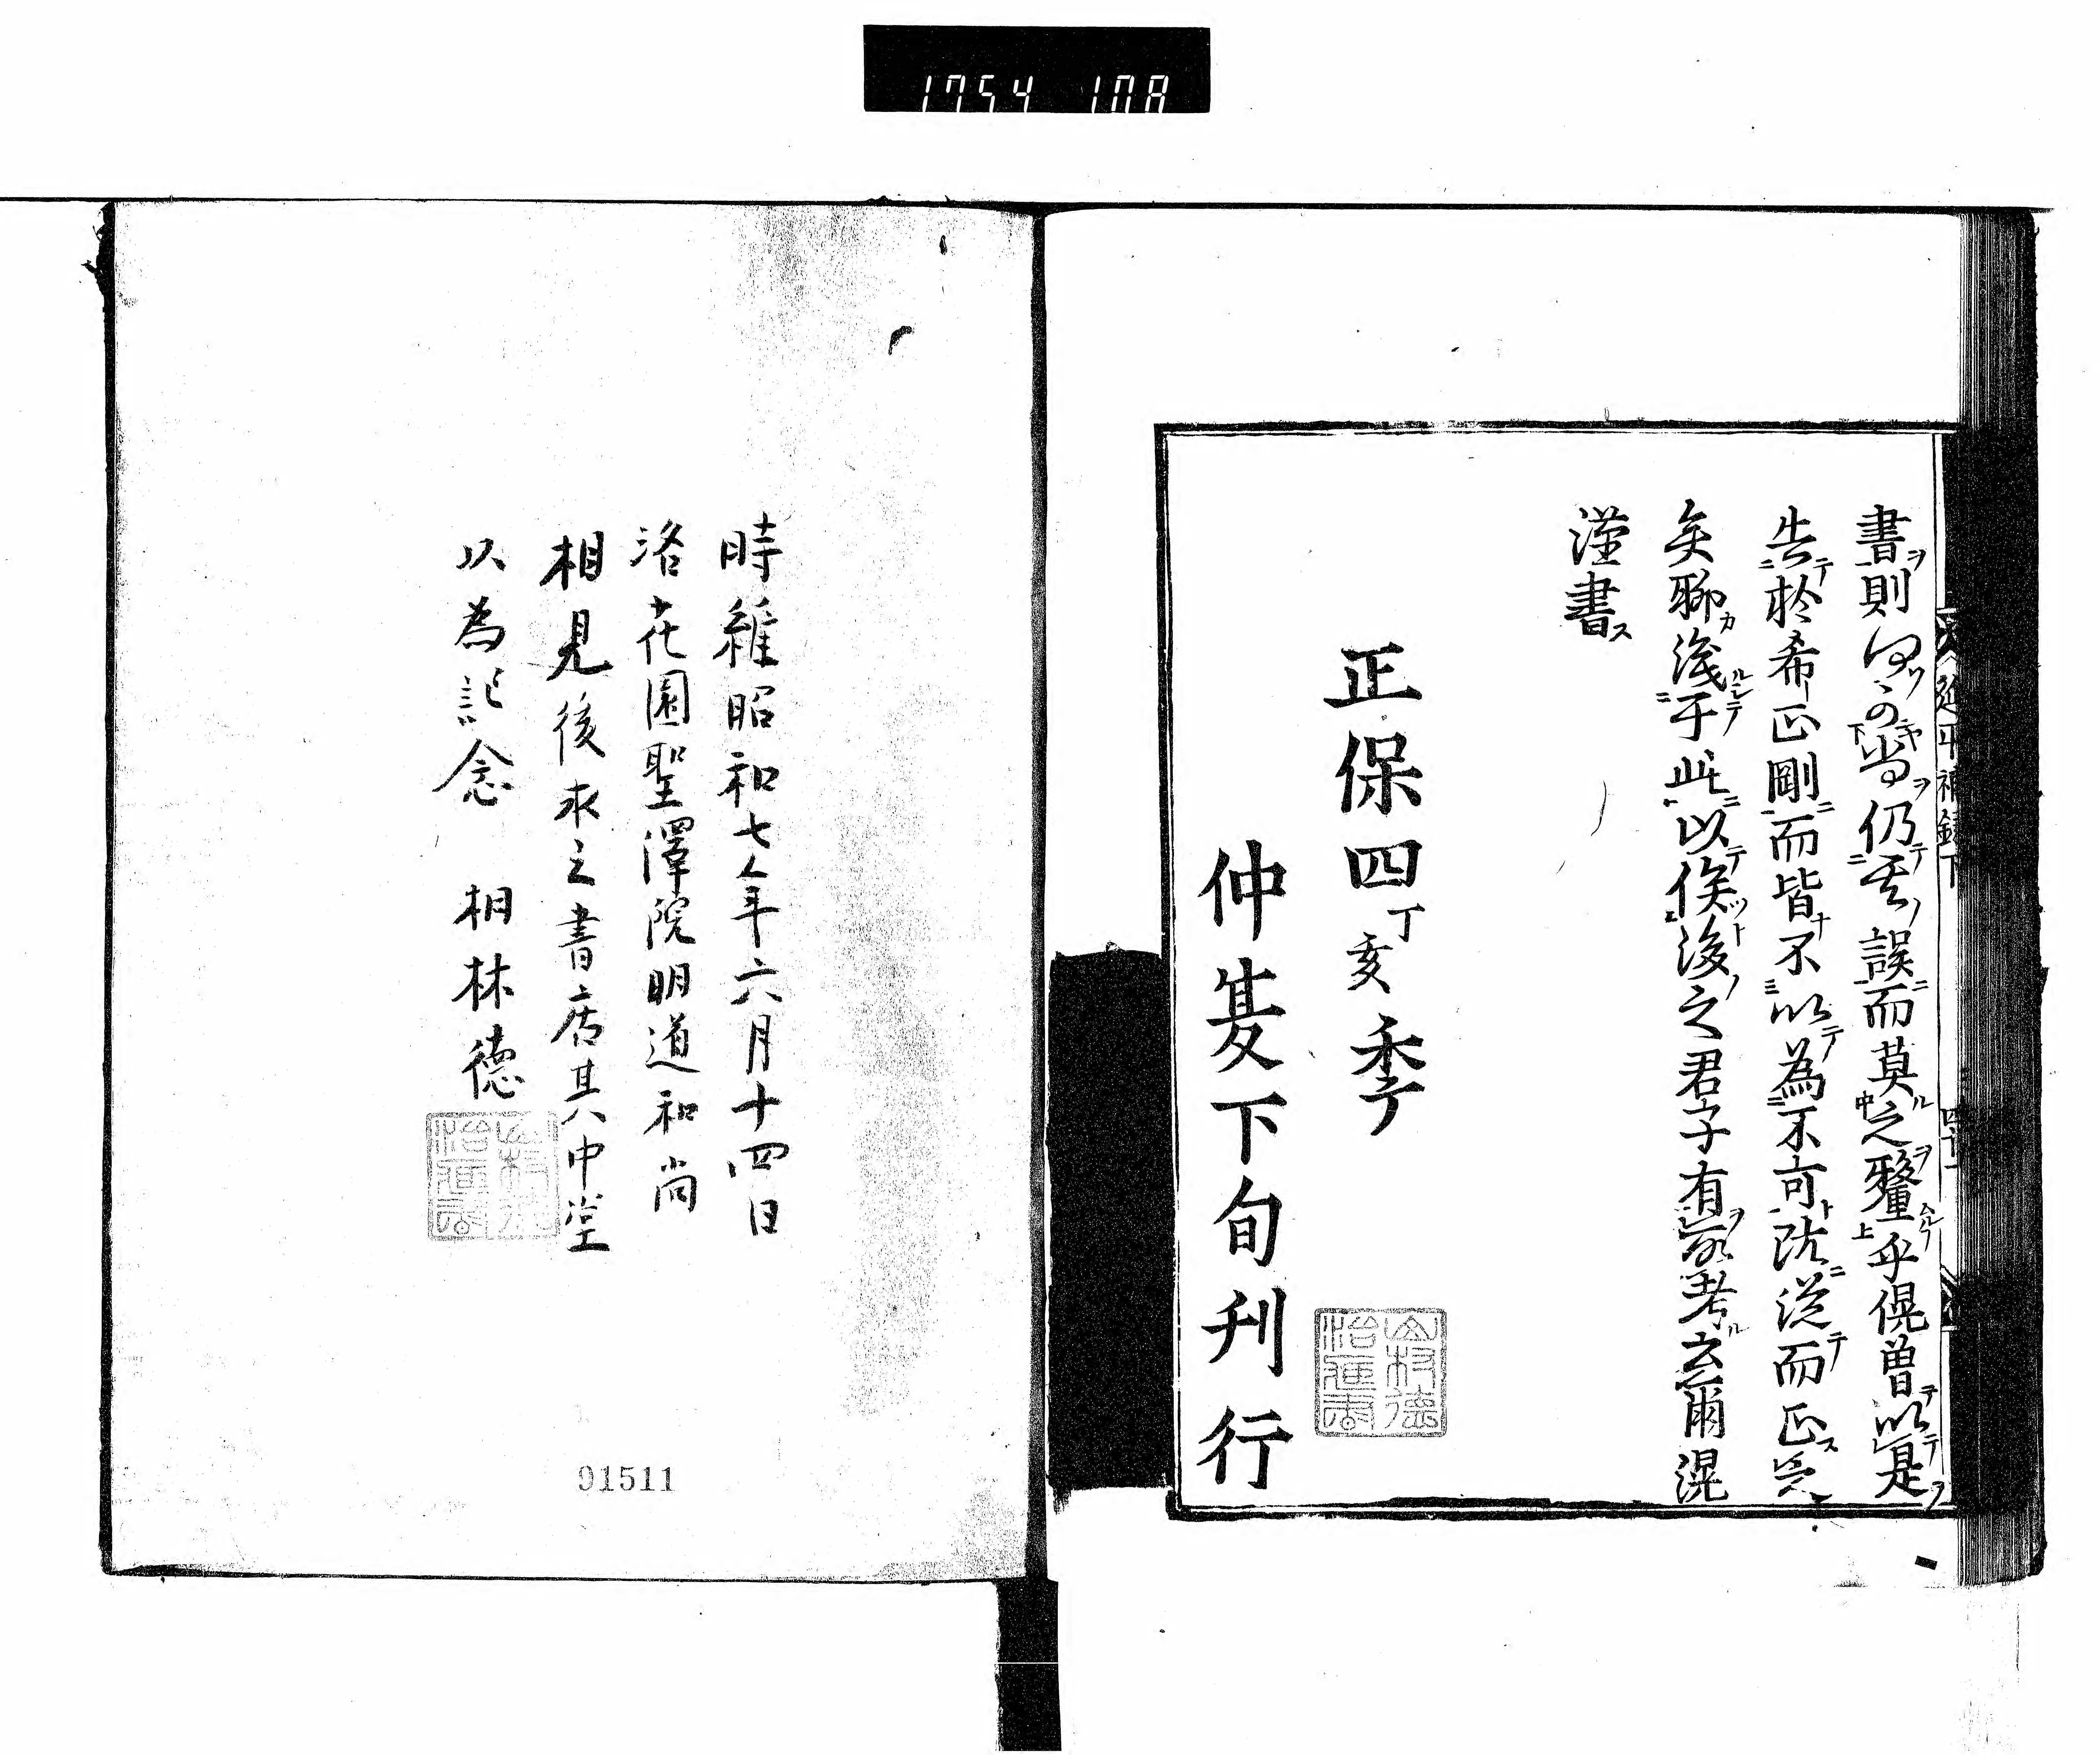 1754 108
書則何可當仍舊誤而莫之釐乎滉曽以是
告於希正剛而皆不以為不可既從而正之
矣聊識于此以俟後之君子有所考云爾滉
謹書
正保四丁亥季
仲夏下旬刊行
延平補録下
時維昭和七年六月十四日
洛花園聖澤院明道和尚
相見後求之書店其中堂
以為記念 相林德
91511